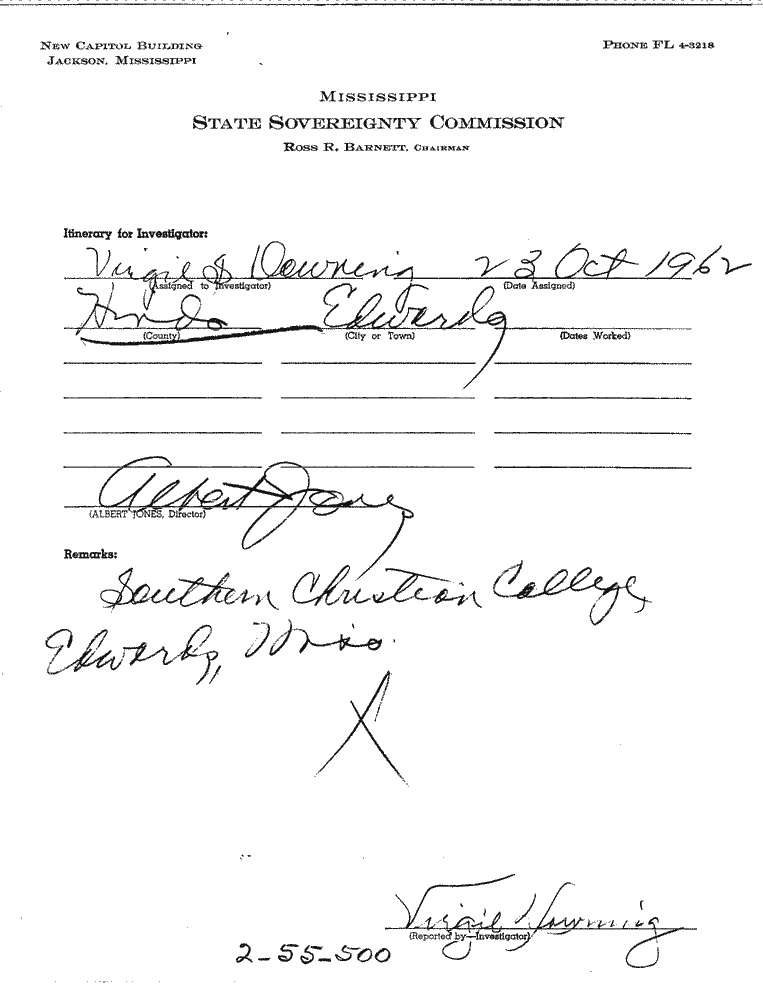 NEW CAPITOL BUILDING
JACKSON, MISSISSIPPI
PHONE FL 4-3218
MISSISSIPPI
STATE SOVEREIGNTY COMMISSION
ROSS R. BARNETT, CHAIRMAN
Itinerary for Investigator:
Virgil S Downing 23 Oct 1962
(Assigned to Investigator) (Date Assigned)
Hinds Edwards
(County) (City or Town) (Dates Worked)
Albert Jones
(ALBERT JONES, Director)
Remarks:
Southern Christian College,
Edwards, Miss.
X
Virgil Downing
(Reported by—Investigator)
2-55-500